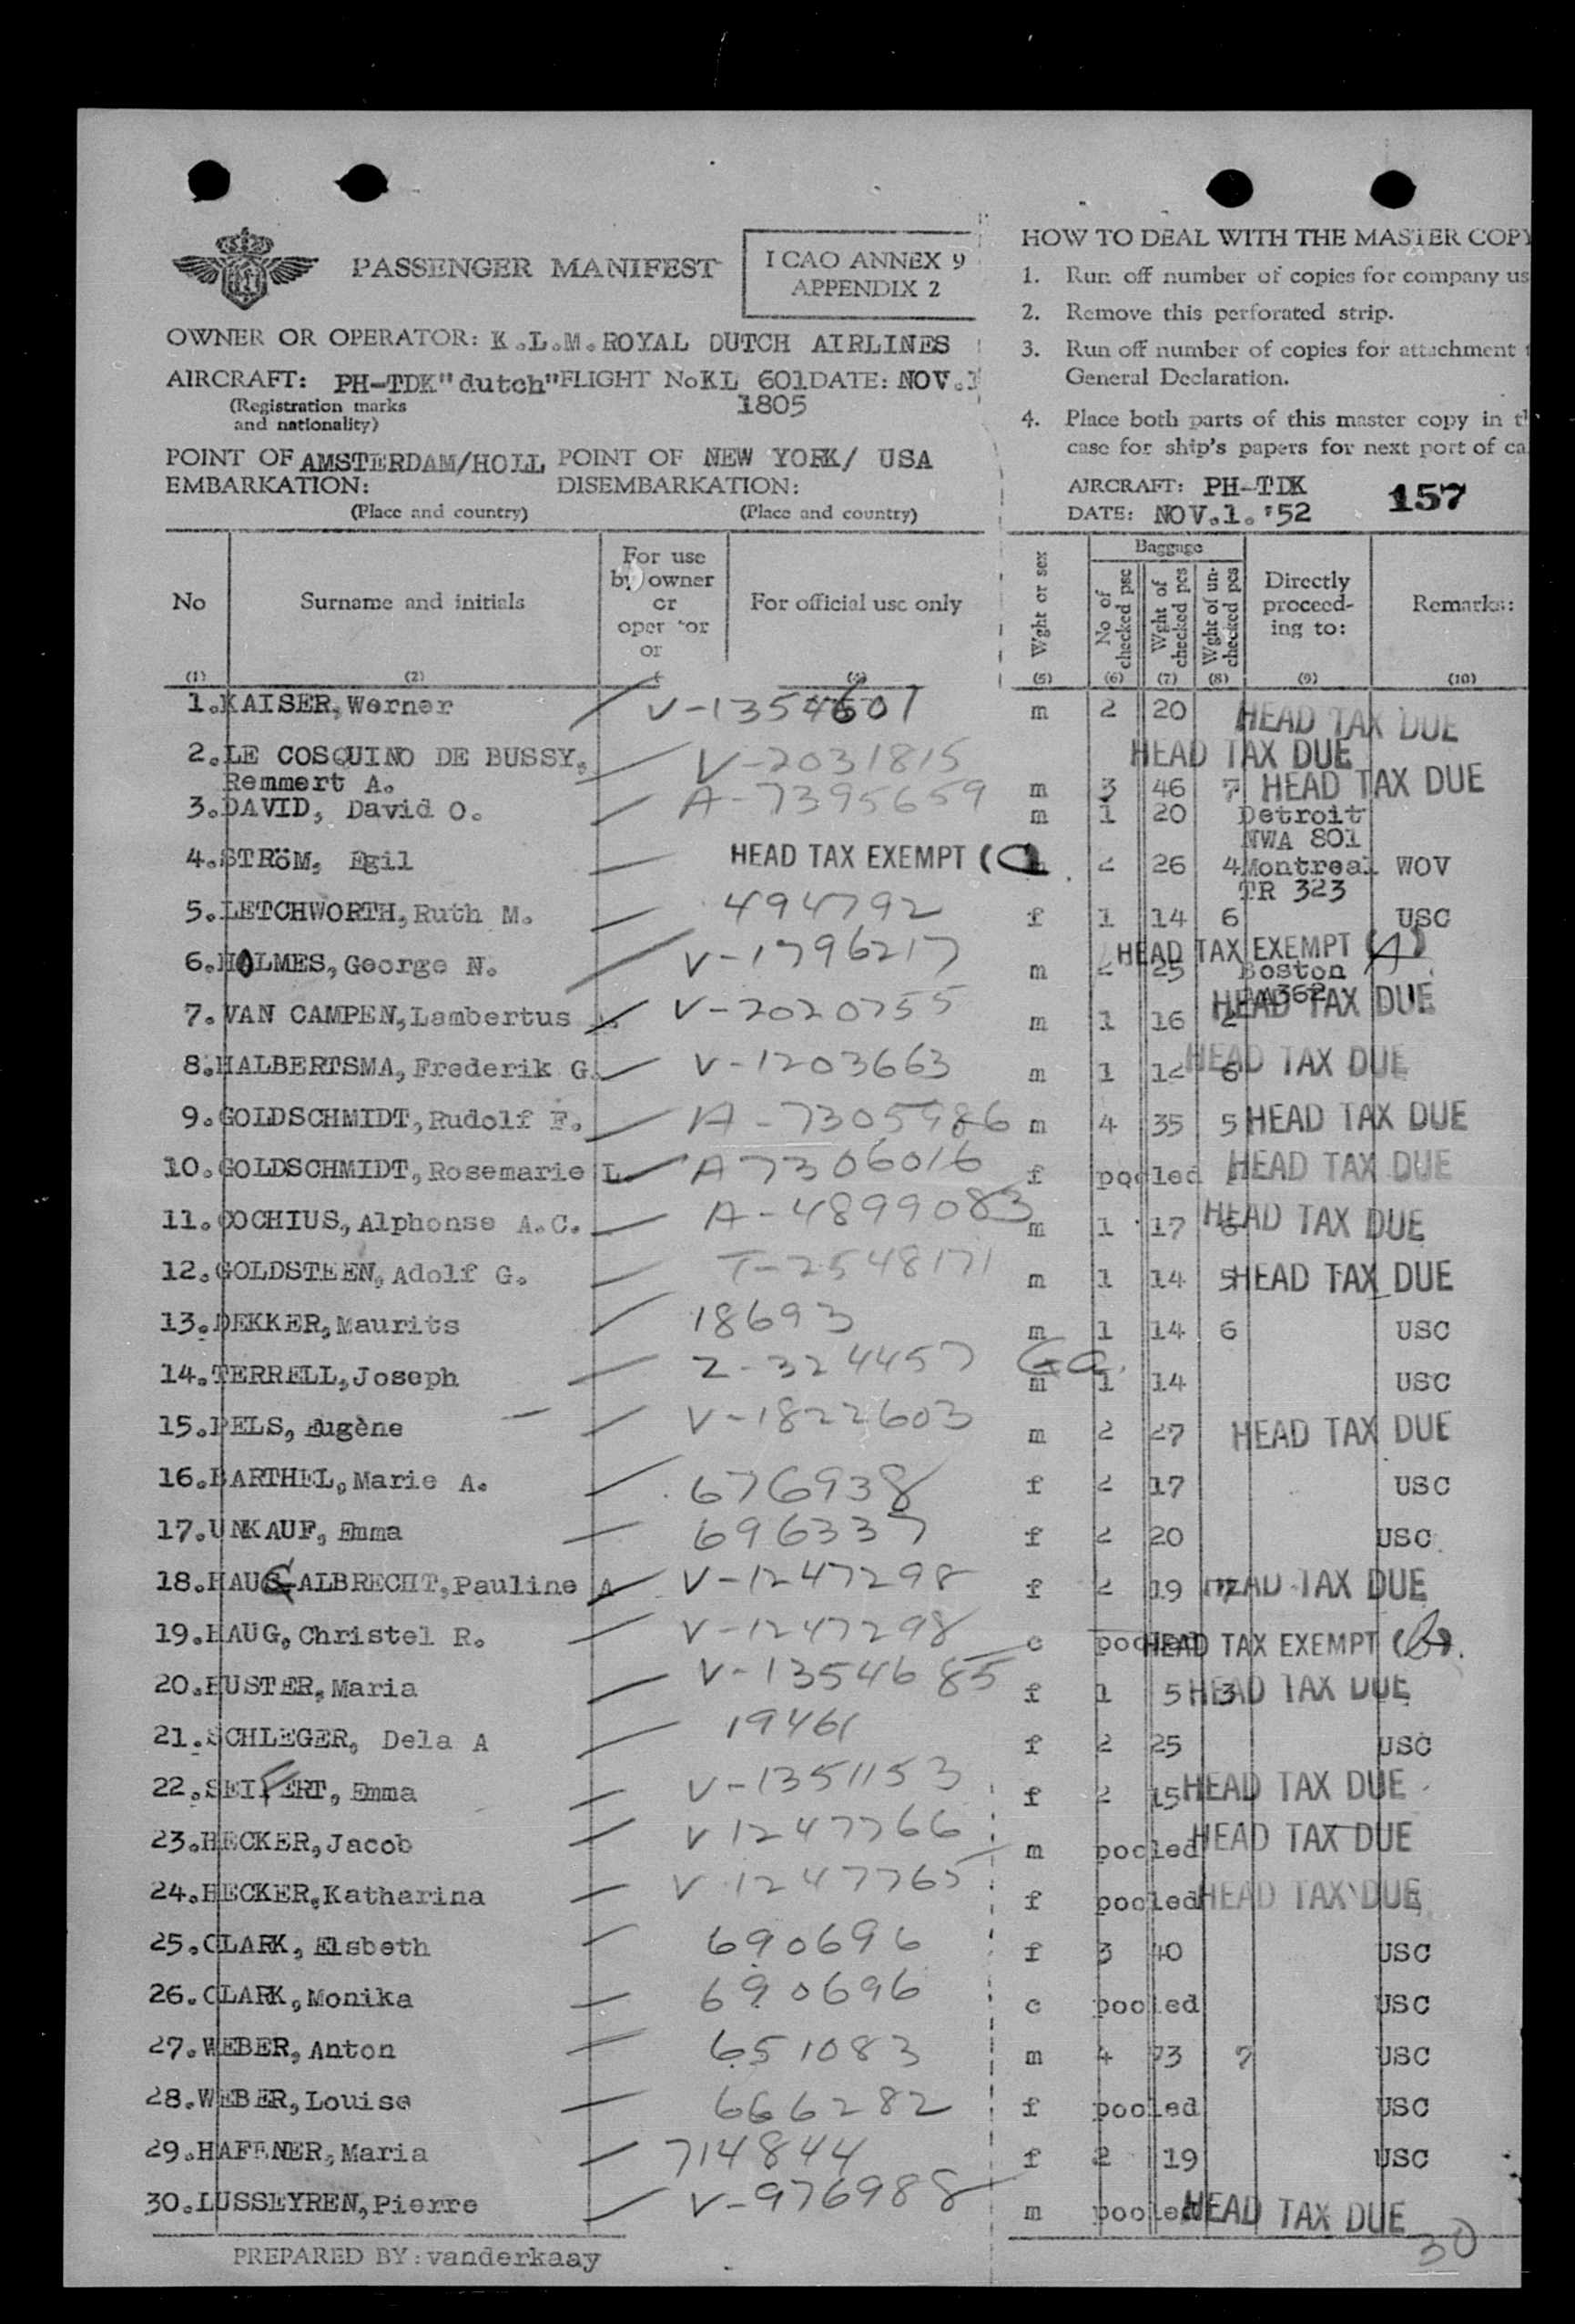 PASSENGER MANIFEST
I CAO ANNEX 9
APPENDIX 2
OWNER OR OPERATOR: K.L.M. ROYAL DUTCH AIRLINES
AIRCRAFT: PH-TDK "dutch" FLIGHT No KL 601 DATE: NOV.1
(Registration marks
and nationality)
1805
POINT OF EMBARKATION: AMSTERDAM/HOLL POINT OF DISEMBARKATION: NEW YORK/ USA
(Place and country) (Place and country)
HOW TO DEAL WITH THE MASTER COPY
1. Run off number of copies for company us
2. Remove this perforated strip.
3. Run off number of copies for attachment
General Declaration.
4. Place both parts of this master copy in
case for ship's papers for next port of ca
AIRCRAFT: PH-TDK 157
DATE: NOV.1.'52
No Surname and initials For use by owner or oper tor or For official use only Wght or sex Baggage No of checked psc Wght of checked pcs Wght of un-checked pcs Directly proceed-ing to: Remarks:
(1) (2) (5) (6) (7) (8) (9) (10)
1. KAISER, Werner V-1354601 m 2 20 HEAD TAX DUE
2. LE COSQUINO DE BUSSY, V-2031815 HEAD TAX DUE
Remmert A. m 3 46 7 HEAD TAX DUE
3. DAVID, David O. A-7395659 m 1 20 Detroit
NWA 801
4. STRöM, Egil HEAD TAX EXEMPT 2 26 4 Montreal WOV
TR 323
5. LETCHWORTH, Ruth M. 494792 f 1 14 6 USC
6. HOLMES, George N. V-1796217 m 2 25 HEAD TAX EXEMPT (A)
Boston
7. VAN CAMPEN, Lambertus V-2020755 m 1 16 2 HEAD TAX DUE
8. HALBERTSMA, Frederik G. V-1203663 m 1 12 6 HEAD TAX DUE
9. GOLDSCHMIDT, Rudolf F. A-7305986 m 4 35 5 HEAD TAX DUE
10. GOLDSCHMIDT, Rosemarie L. A7306016 f pooled HEAD TAX DUE
11. COCHIUS, Alphonse A.C. A-4899083 m 1 17 6 HEAD TAX DUE
12. GOLDSTEEN, Adolf G. T-2548171 m 1 14 5 HEAD TAX DUE
13. DEKKER, Maurits 18693 m 1 14 6 USC
14. TERRELL, Joseph Z-324457 Ga. m 1 14 USC
15. PELS, Eugène V-1822603 m 2 27 HEAD TAX DUE
16. BARTHEL, Marie A. 676938 f 2 17 USC
17. UNKAUF, Emma 696337 f 2 20 USC
18. HAUG-ALBRECHT, Pauline A V-1247298 f 2 19 HEAD TAX DUE
19. HAUG, Christel R. V-1247298 c pooled HEAD TAX EXEMPT
20. HUSTER, Maria V-1354685 f 1 5 3 HEAD TAX DUE
21. SCHLEGER, Dela A 19461 f 2 25 USC
22. SEIFERT, Emma V-1351153 f 2 15 HEAD TAX DUE
23. HECKER, Jacob V1247766 m pooled HEAD TAX DUE
24. HECKER, Katharina V1247765 f pooled HEAD TAX DUE
25. CLARK, Elsbeth 690696 f 3 40 USC
26. CLARK, Monika 690696 c pooled USC
27. WEBER, Anton 651083 m 4 73 7 USC
28. WEBER, Louise 666282 f pooled USC
29. HAFENER, Maria 714844 f 2 19 USC
30. LUSSEYREN, Pierre V-976988 m pooled HEAD TAX DUE
30
PREPARED BY: vanderkaay